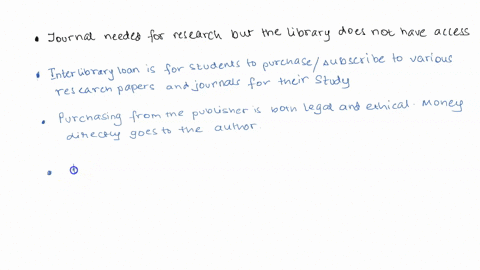 • Journal needed for research but the library does not have access
• Interlibrary loan is for students to purchase/subscribe to various
research papers and journals for their study
• Purchasing from the publisher is both legal and ethical. Money
directly goes to the author.
•